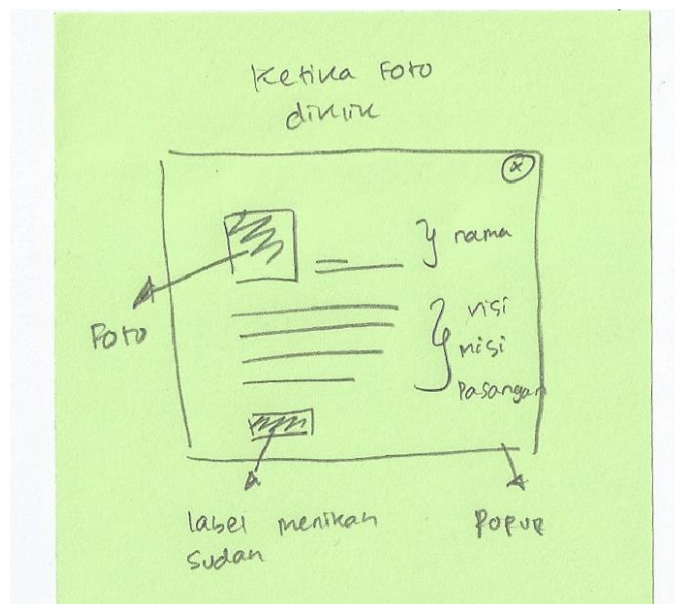 Ketika Foto
diklik
x
nama
Foto
visi
misi
Pasangan
label menikah
sudah
Popup